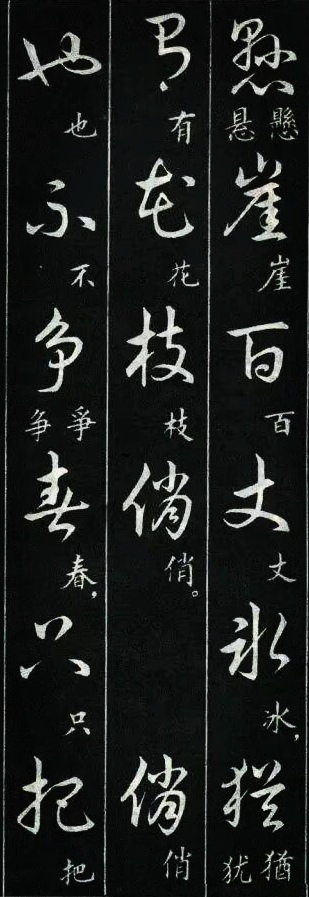 懸崖百丈冰猶
懸悬崖百丈冰，猶犹
有花枝俏俏
有花枝俏。俏
也不争春只把
也不爭争春，只把